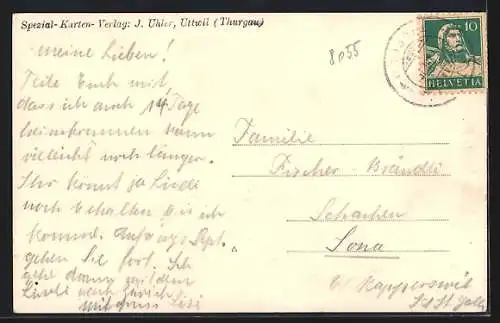 Spezial-Karten-Verlag: J. Uhler, Uttwil (Thurgau)
8055
10
HELVETIA
Meine Lieben!
Teile Euch mit,
dass ich auch 14 Tage
heimkommen kann
vielleicht noch länger.
Ihr könnt ja Liseli
noch behalten bis ich
komme. Anfangs Sept.
gehen Sie fort. Ich
gehe dann mit dem
Liseli nach Zürich
Mit Gruss Lisi
Familie
Fischer-Brändli
Schachen
Jona
b/ Rapperswil
Kt. St. Gallen